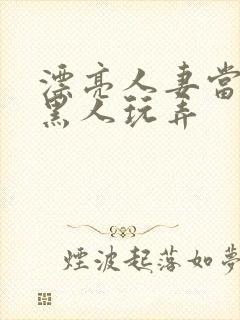 漂亮人妻当
黑人玩弄
煙波起落如夢